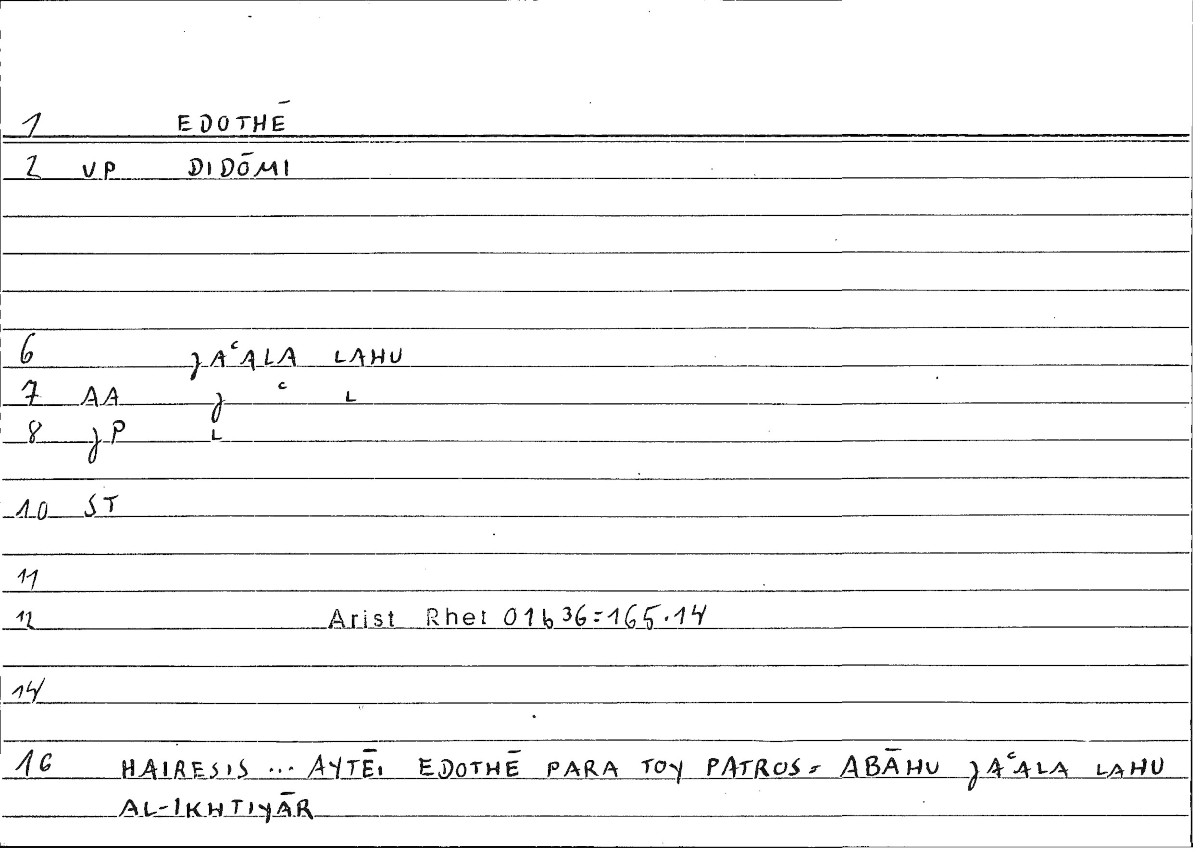 1 EDOTHĒ
2 VP DIDŌMI
6 JAʿALA LAHU
7 AA J ʿ L
8 JP L
10 ST
11
12 Arist Rhet 01b36=165.14
14
16 HAIRESIS ... AYTĒI EDOTHĒ PARA TOY PATROS= ABĀHU JAʿALA LAHU
AL-IKHTIYĀR